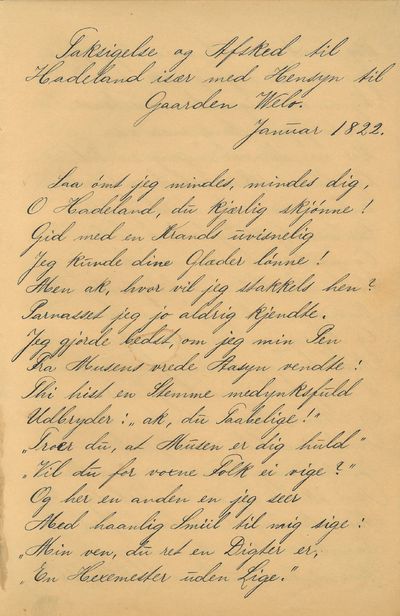 Taksigelse og Afsked til
Hadeland især med Hensyn til
Gaarden Welo.
Januar 1822.
Saa ómt jeg mindes, mindes dig,
O Hadeland, du kjærlig skjónne!
Gid med en Krands uvisnelig
Jeg kunde dine Glæder lónne!
Men ak, hvor vil jeg stakkels hen?
Parnasset jeg jo aldrig kjendte.
Jeg gjorde bedst, om jeg min Pen
Fra Musens vrede Aasyn vendte:
Thi hist en Stemme medynksfuld
Udbryder: „ak, du Taabelige!"
„Troer du, at Musen er dig huld"
„Vil du for voxne Folk ei vige?"
Og her en anden en jeg seer
Med haanlig Smiil til mig sige:
„Min ven, du ret en Digter er,
„En Hexemester uden Lige."